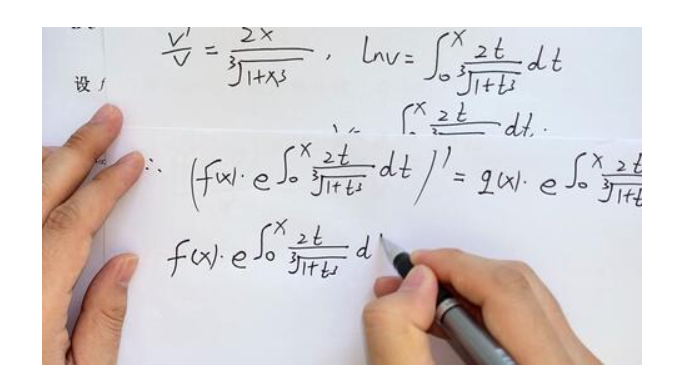 v'/v = 2x/∛(1+x³), lnv = ∫₀ˣ 2t/∛(1+t³) dt
设 f
∫₀ˣ 2t/ dt.
∴ (f(x)·e^∫₀ˣ 2t/∛(1+t³) dt)' = q(x)·e^∫₀ˣ 2t/∛(1+t
f(x)·e^∫₀ˣ 2t/∛(1+t³) d